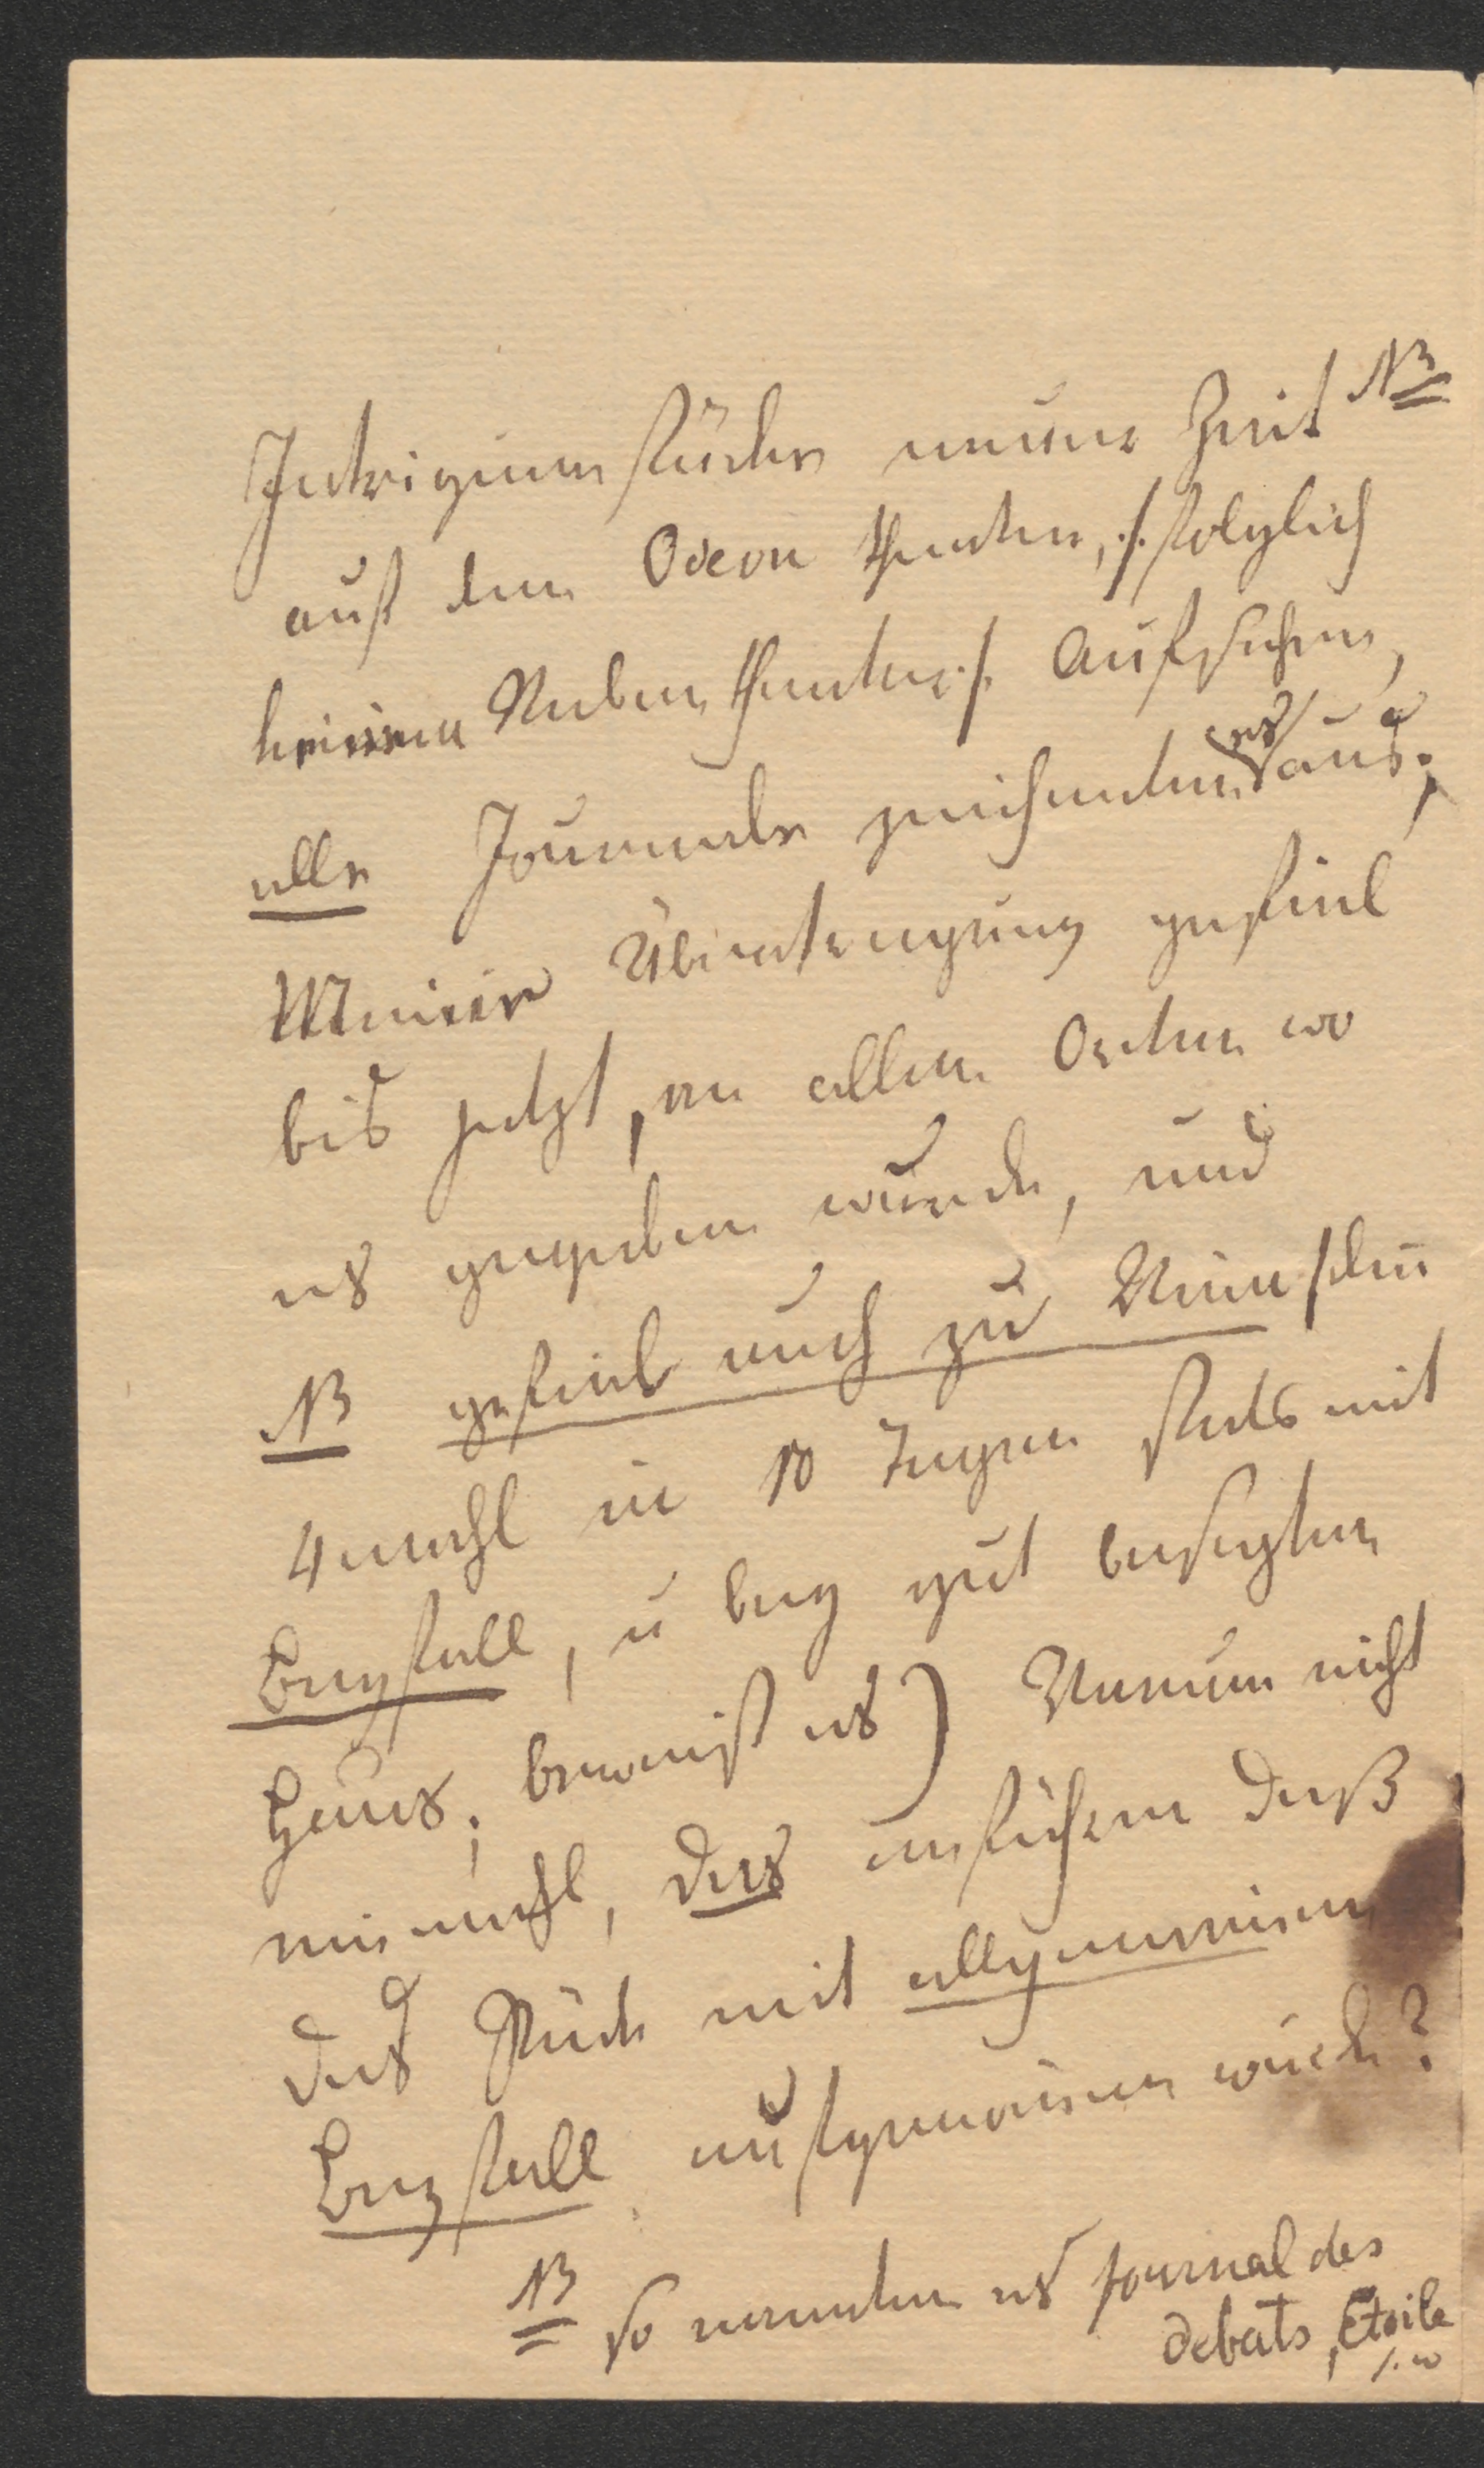 Intriguenstücke neuerer Zeit NB
auf dem Odeon theater, ./. folglich
keinem Nebentheater ./. Aufsehen,
alle Journale zeichneten es aus;
Meine Übertragung gefiel
bis jetzt, an allen Orten wo
es gegeben wurde, und
NB gefiel auch zu
4 mahl in 10 Tagen stets mit
Beyfall, u bey gut besetztem
Haus, beweist es) Warum nicht
einmahl, das anführen daß
das Stück mit allgemeinem
Beyfall aufgenommen wurde?
NB so nannten es Journal des
debats, Etoile